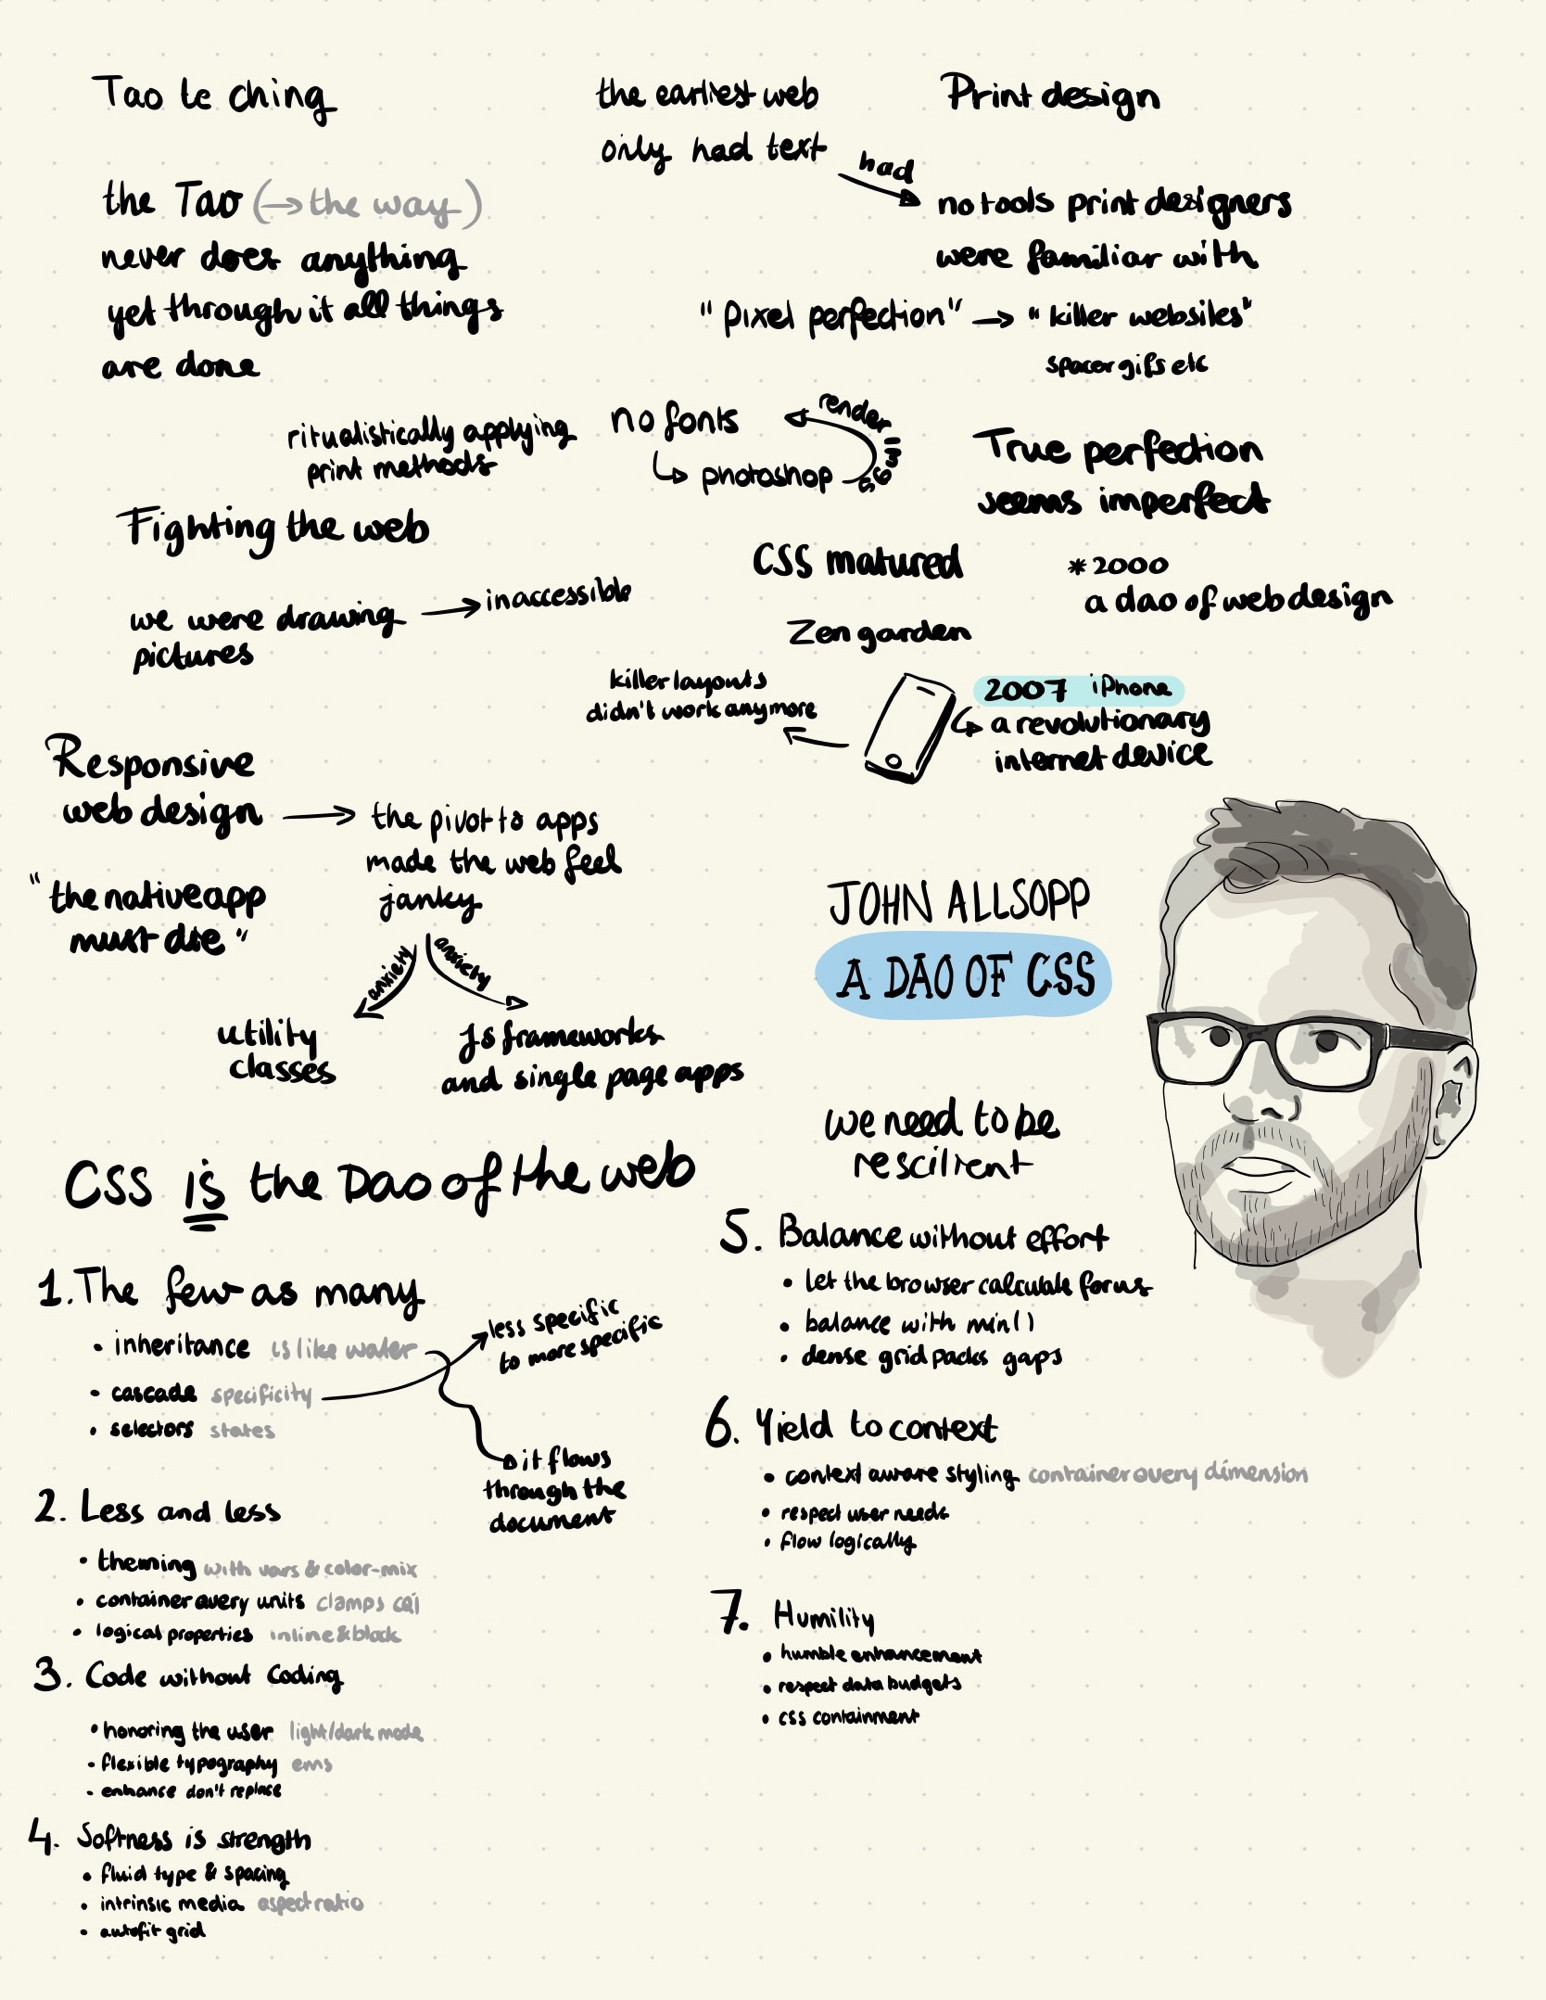 Tao te ching
the Tao (→ the way)
never does anything
yet through it all things
are done
the earliest web
only had text
had
Print design
no tools print designers
were familiar with
"pixel perfection" → "killer websites"
spacer gifs etc
ritualistically applying
print methods
no fonts
photoshop
render in
Fighting the web
True perfection
seems imperfect
we were drawing
pictures
inaccessible
CSS matured
Zen garden
*2000
a dao of web design
killer layouts
didn't work anymore
2007 iPhone
a revolutionary
internet device
Responsive
web design
the pivot to apps
made the web feel
janky
"the native app
must die"
anxiety
anxiety
utility
classes
JS frameworks
and single page apps
JOHN ALLSOPP
A DAO OF CSS
we need to be
rescilient
CSS is the Dao of the web
1. The few as many
• inheritance is like water
• cascade specificity
• selectors states
less specific
to more specific
it flows
through the
document
2. Less and less
• theming with vars & color-mix
• container query units clamps cqi
• logical properties inline & block
3. Code without Coding
• honoring the user light/dark mode
• flexible typography ems
• enhance don't replace
4. Softness is strength
• fluid type & spacing
• intrinsic media aspect ratio
• autofit grid
5. Balance without effort
• let the browser calculate for us
• balance with min()
• dense grid packs gaps
6. Yield to context
• context aware styling container query dimension
• respect user needs
• flow logically
7. Humility
• humble enhancement
• respect data budgets
• css containment